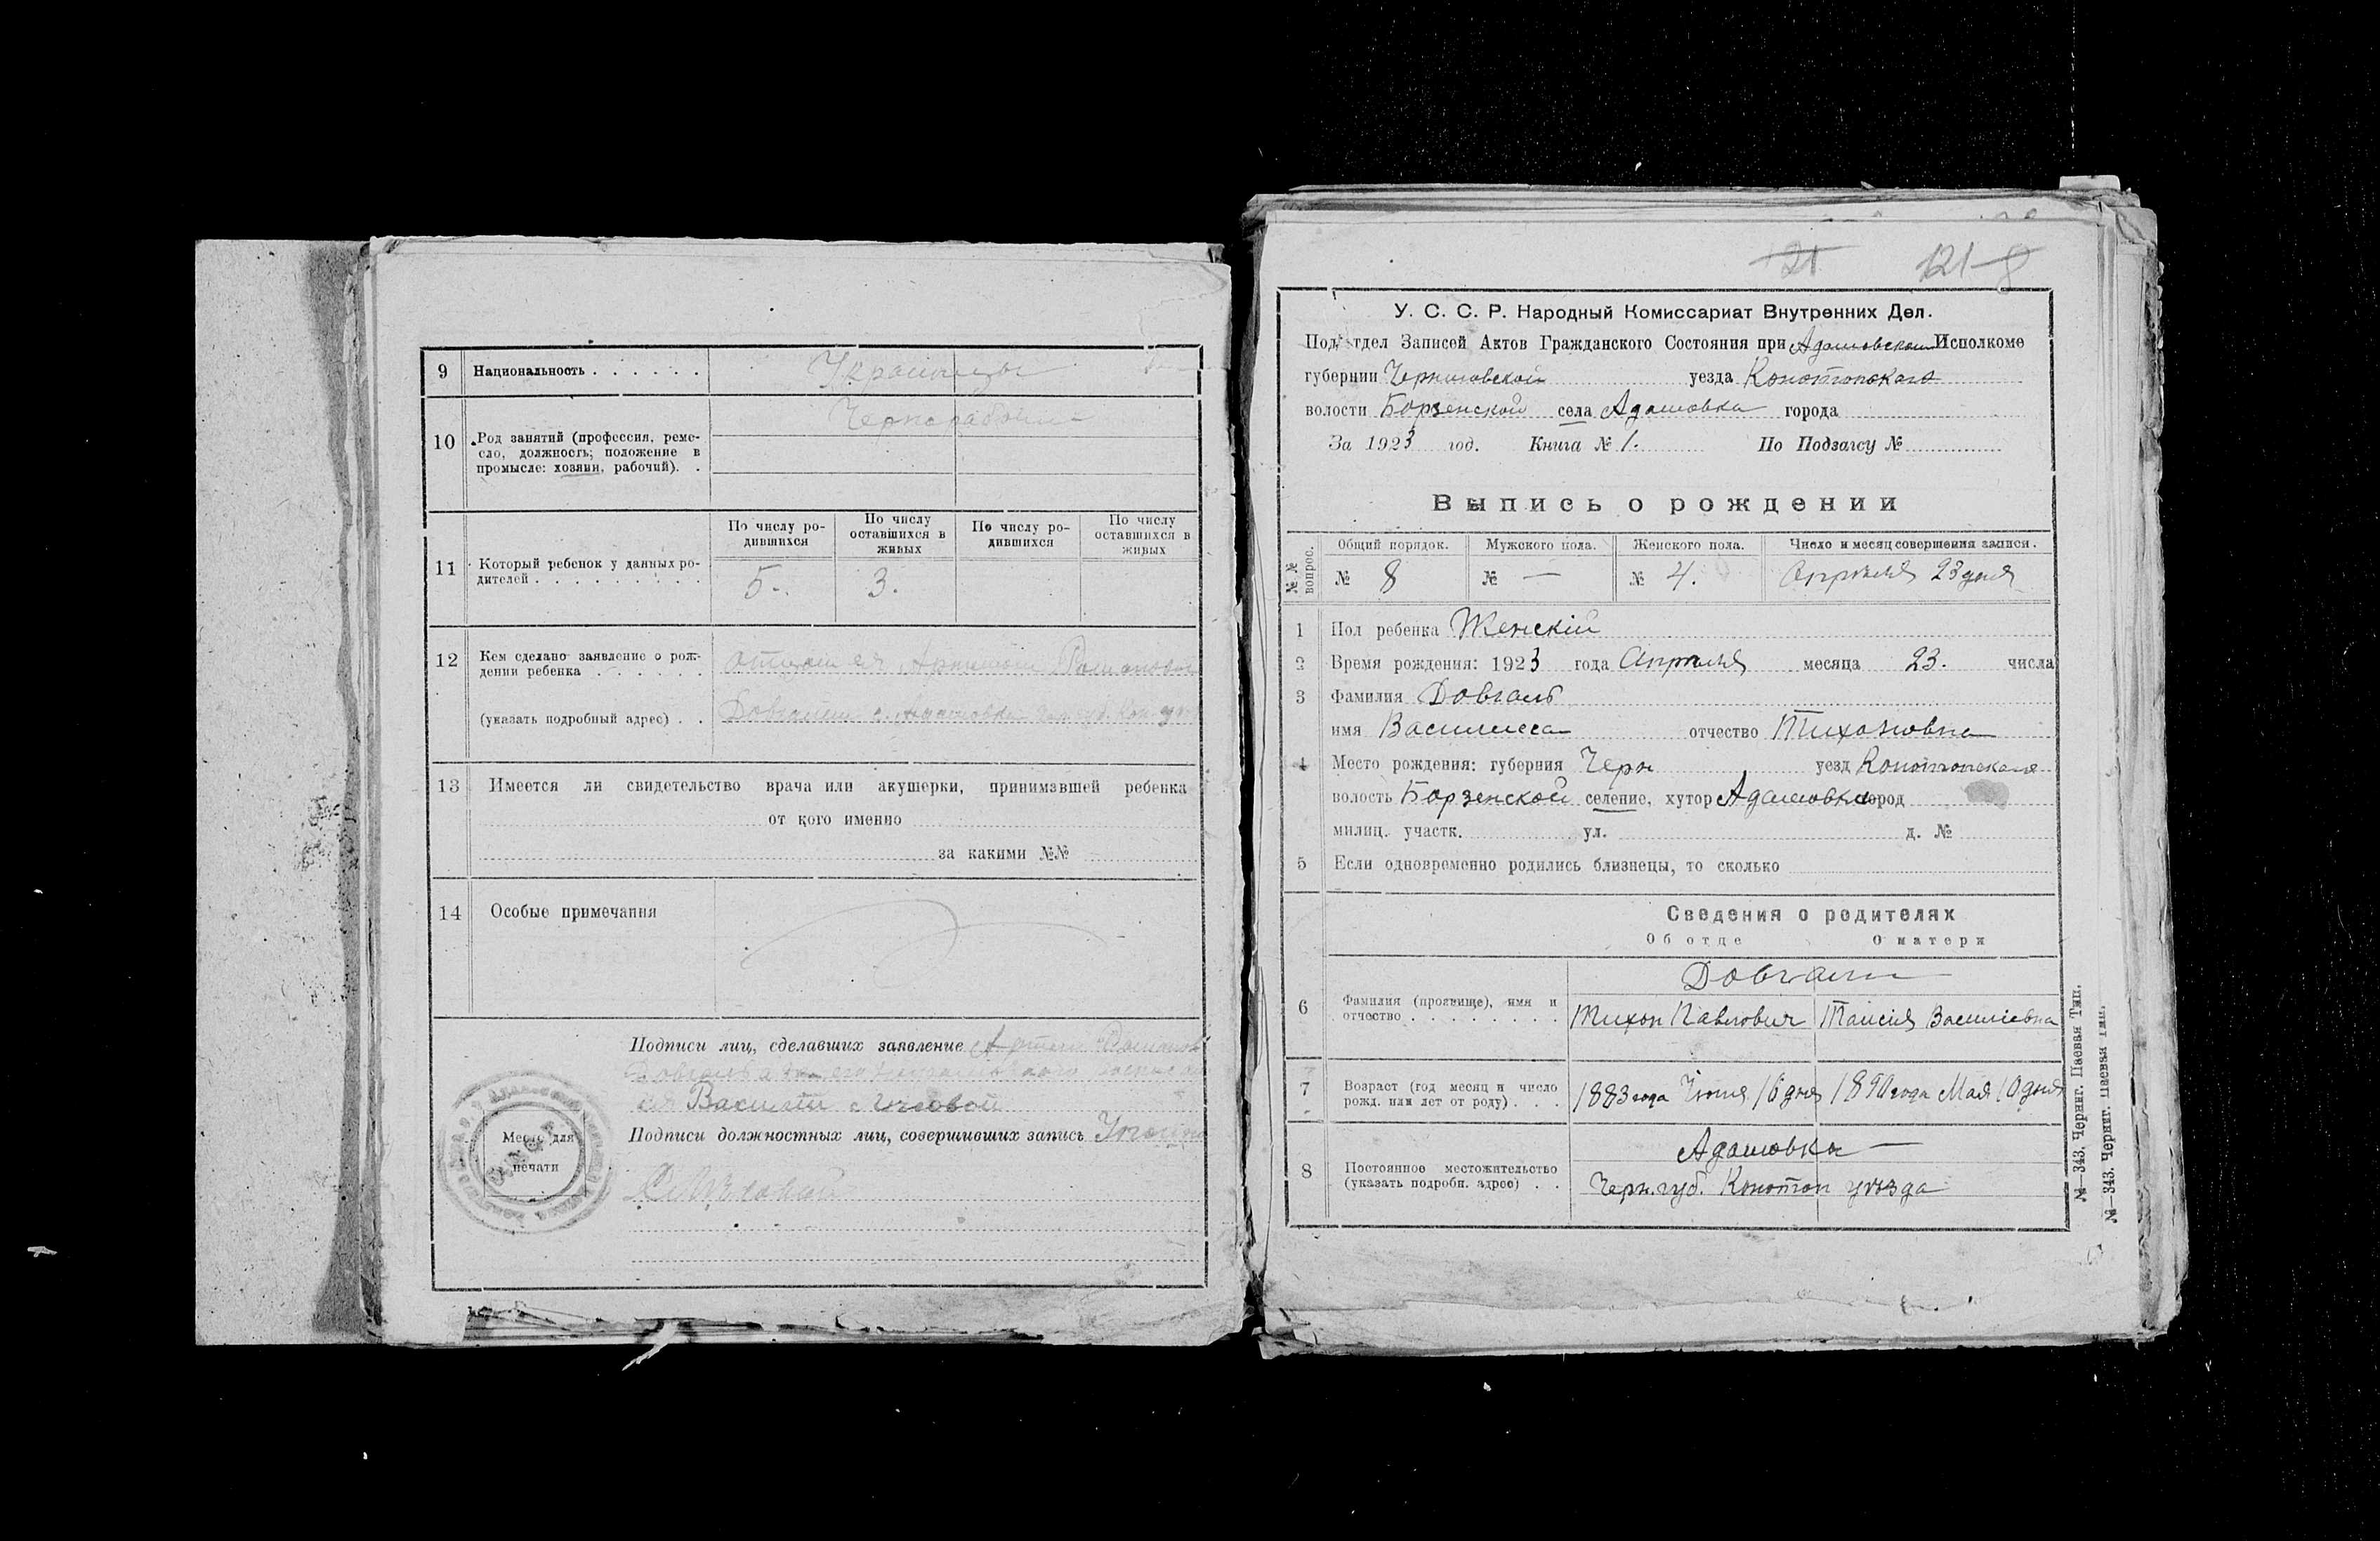 9 Национальность . . . . . . Украинцы
10 Род занятий (профессия, реме-
сло, должность; положение в
промысле: хозяин, рабочий). .
Чернорабочий
11 Который ребенок у данных ро-
дителей . . . . . . . . .
По числу ро-
дившихся
По числу
оставшихся в
живых
По числу ро-
дившихся
По числу
оставшихся в
живых
5. 3.
12 Кем сделано заявление о рож-
дении ребенка . . . . . .
(указать подробный адрес) . .
отцом ея Артемом Романовым
Довгалем с. Адамовка
13 Имеется ли свидетельство врача или акушерки, принимавшей ребенка
от кого именно
за какими №№
14 Особые примечания
Подписи лиц, сделавших заявление Артем Романов
Довгаль а
Подписи должностных лиц, совершивших запись
Место для
печати
21 121 8
У. С. С. Р. Народный Комиссариат Внутренних Дел.
Под'отдел Записей Актов Гражданского Состояния при Адамовском Исполкоме
губернии Черниговской уезда Конотопскаго
волости Борзенской села Адамовка города
За 1923 год. Книга № 1. По Подзагсу №
Выпись о рождении
№№ вопрос.
Общий порядок. Мужского пола. Женского пола. Число и месяц совершения записи.
№ 8 № — № 4. Апреля 23 дня
1 Пол ребенка Женскій
2 Время рождения: 1923 года Апреля месяца 23. числа
3 Фамилия Довгаль
имя Василиса отчество Тихоновна
4 Место рождения: губерния Черн уезд Конотопскаго
волость Борзенской селение, хутор Адамовка город
милиц. участк. ул. д. №
5 Если одновременно родились близнецы, то сколько
Сведения о родителях
Об отце О матери
6 Фамилия (прозвище), имя и
отчество . . . . . . . .
Довгали
Тихон Павлович Таисія Василіевна
7 Возраст (год месяц и число
рожд. или лет от роду) . . .
1883 года Іюня 16 дня 1890 года Мая 10 дня
8 Постоянное местожительство
(указать подробн. адрес) . .
Адамовка —
Черн. губ. Конотоп уезда
№—343. Черниг. Паевая Тип.
№—343. Черниг. Паевая Тип.